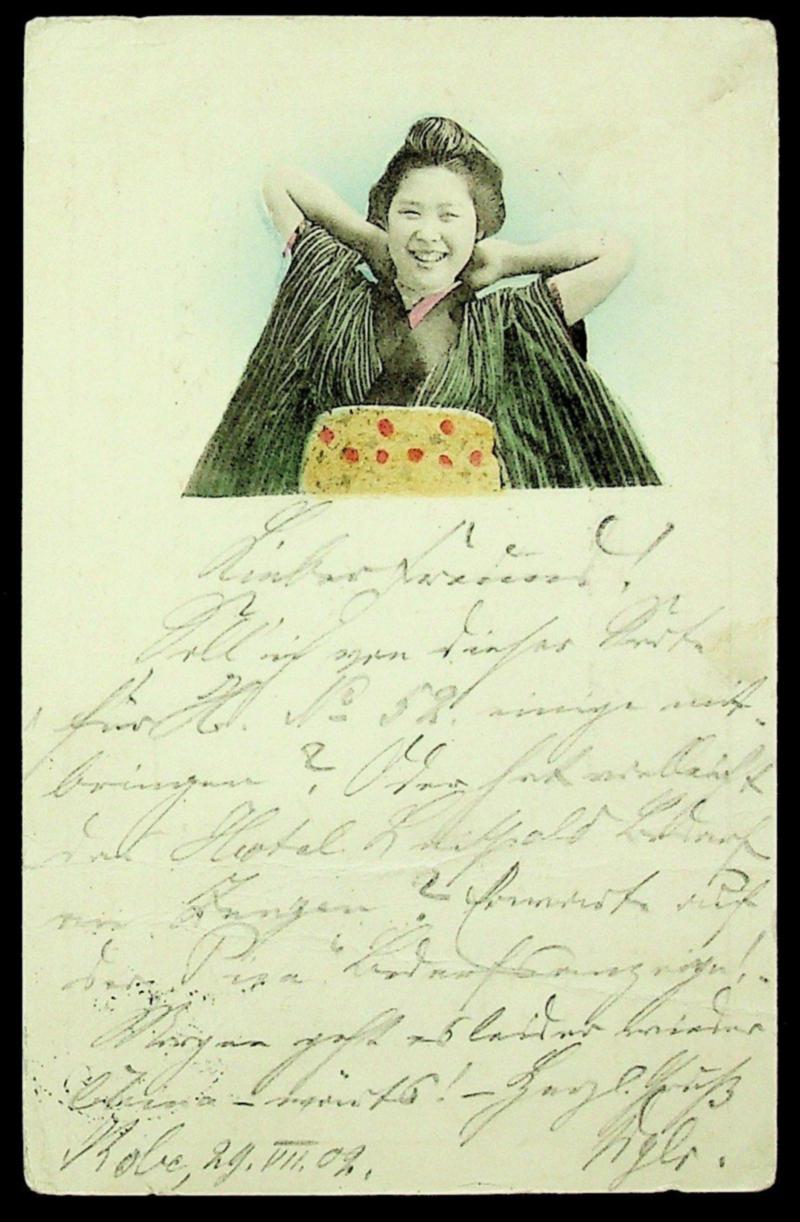 Lieber Freund!
Soll ich von dieser Sorte
für H. No 52. einige mit-
bringen? Oder hat vielleicht
das Hotel Luitpold Bedarf
an Jungen? Erwarte auf
der "Pisa" Bedarfsanzeige!
Morgen geht es leider wieder
China-wärts! – Herzl. Gruß
Kobe, 29. VII. 02.